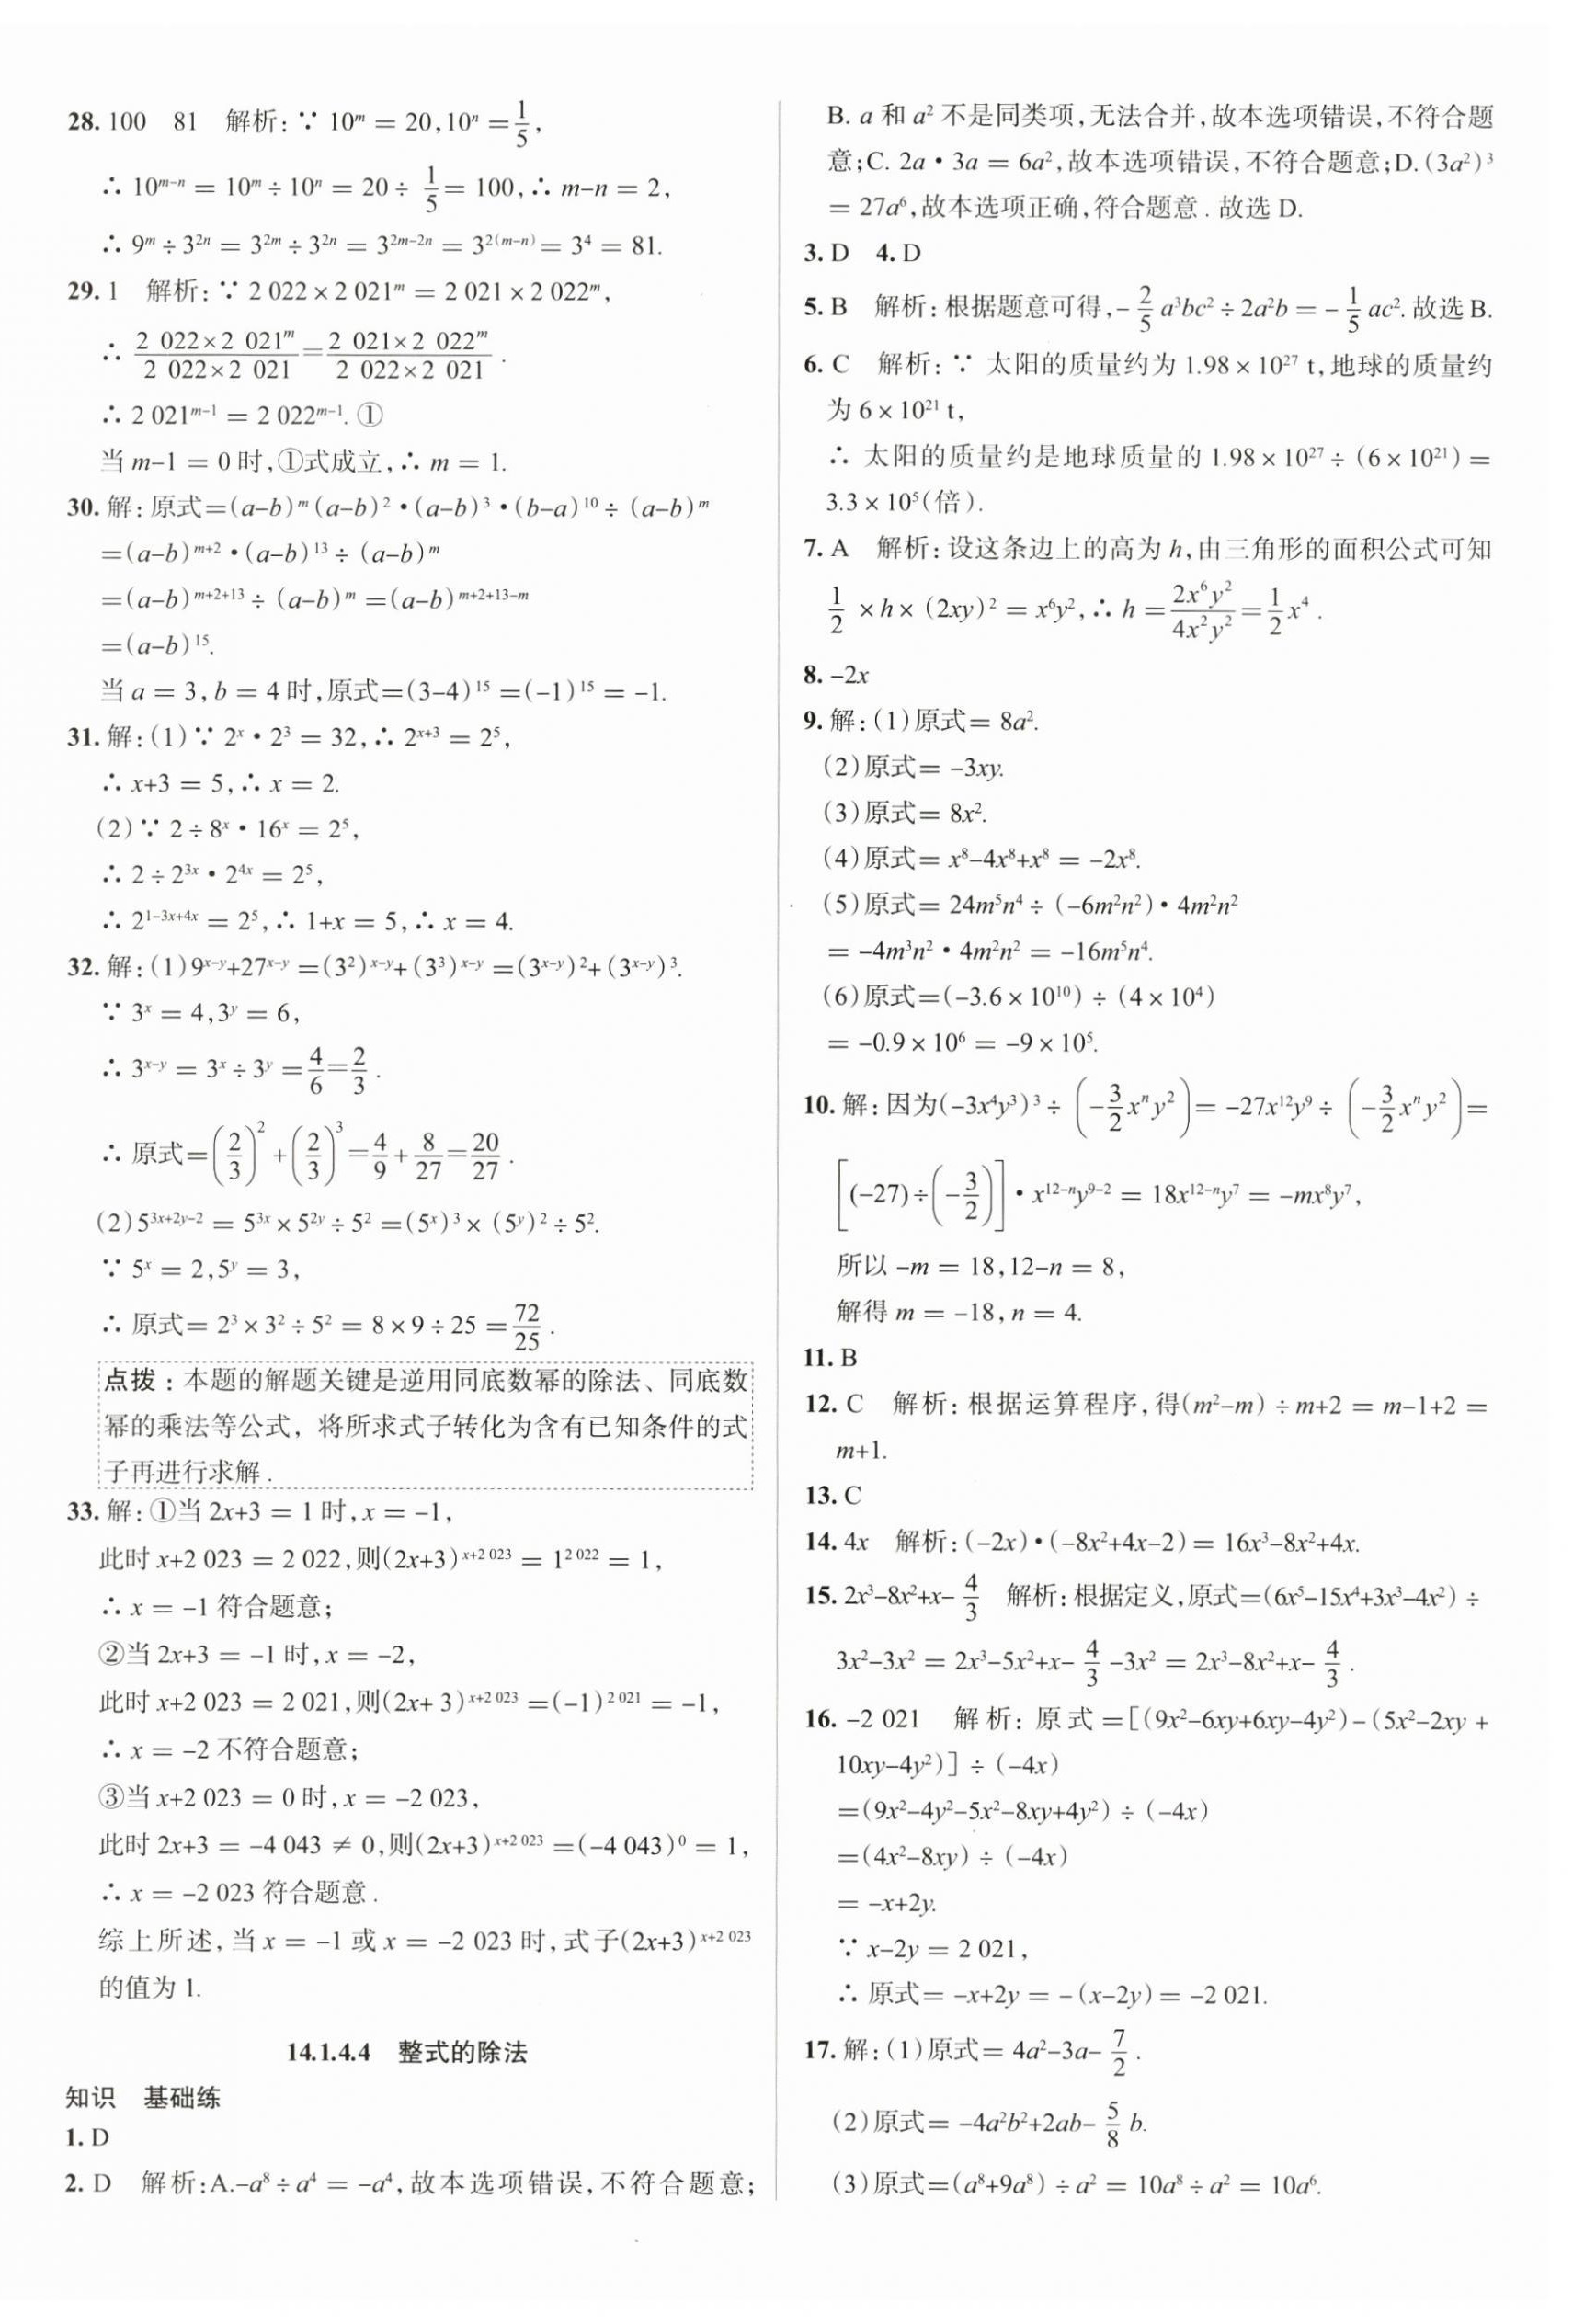 28. 100　81　解析:∵ 10^m = 20,10^n = 1/5,
∴ 10^{m-n} = 10^m ÷ 10^n = 20 ÷ 1/5 = 100,∴ m-n = 2,
∴ 9^m ÷ 3^{2n} = 3^{2m} ÷ 3^{2n} = 3^{2m-2n} = 3^{2(m-n)} = 3^4 = 81.
29. 1　解析:∵ 2 022 × 2 021^m = 2 021 × 2 022^m,
∴ (2 022×2 021^m)/(2 022×2 021) = (2 021×2 022^m)/(2 022×2 021).
∴ 2 021^{m-1} = 2 022^{m-1}. ①
当 m-1 = 0 时,①式成立,∴ m = 1.
30. 解:原式=(a-b)^m (a-b)^2 · (a-b)^3 · (b-a)^{10} ÷ (a-b)^m
=(a-b)^{m+2} · (a-b)^{13} ÷ (a-b)^m
=(a-b)^{m+2+13} ÷ (a-b)^m =(a-b)^{m+2+13-m}
=(a-b)^{15}.
当 a = 3,b = 4 时,原式=(3-4)^{15} =(-1)^{15} = -1.
31. 解:(1)∵ 2^x · 2^3 = 32,∴ 2^{x+3} = 2^5,
∴ x+3 = 5,∴ x = 2.
(2)∵ 2 ÷ 8^x · 16^x = 2^5,
∴ 2 ÷ 2^{3x} · 2^{4x} = 2^5,
∴ 2^{1-3x+4x} = 2^5,∴ 1+x = 5,∴ x = 4.
32. 解:(1)9^{x-y}+27^{x-y} =(3^2)^{x-y}+(3^3)^{x-y} =(3^{x-y})^2+(3^{x-y})^3.
∵ 3^x = 4,3^y = 6,
∴ 3^{x-y} = 3^x ÷ 3^y = 4/6 = 2/3.
∴ 原式=(2/3)^2 + (2/3)^3 = 4/9 + 8/27 = 20/27.
(2)5^{3x+2y-2} = 5^{3x} × 5^{2y} ÷ 5^2 =(5^x)^3 × (5^y)^2 ÷ 5^2.
∵ 5^x = 2,5^y = 3,
∴ 原式= 2^3 × 3^2 ÷ 5^2 = 8 × 9 ÷ 25 = 72/25.
点拨:本题的解题关键是逆用同底数幂的除法、同底数
幂的乘法等公式,将所求式子转化为含有已知条件的式
子再进行求解.
33. 解:①当 2x+3 = 1 时,x = -1,
此时 x+2 023 = 2 022,则(2x+3)^{x+2 023} = 1^{2 022} = 1,
∴ x = -1 符合题意;
②当 2x+3 = -1 时,x = -2,
此时 x+2 023 = 2 021,则(2x+3)^{x+2 023} =(-1)^{2 021} = -1,
∴ x = -2 不符合题意;
③当 x+2 023 = 0 时,x = -2 023,
此时 2x+3 = -4 043 ≠ 0,则(2x+3)^{x+2 023} =(-4 043)^0 = 1,
∴ x = -2 023 符合题意.
综上所述,当 x = -1 或 x = -2 023 时,式子(2x+3)^{x+2 023}
的值为 1.
14.1.4.4　整式的除法
知识　基础练
1. D
2. D　解析:A.-a^8 ÷ a^4 = -a^4,故本选项错误,不符合题意;
B. a 和 a^2 不是同类项,无法合并,故本选项错误,不符合题
意;C. 2a · 3a = 6a^2,故本选项错误,不符合题意;D.(3a^2)^3
= 27a^6,故本选项正确,符合题意. 故选 D.
3. D　4. D
5. B　解析:根据题意可得,- 2/5 a^3bc^2 ÷ 2a^2b = - 1/5 ac^2. 故选 B.
6. C　解析:∵ 太阳的质量约为 1.98 × 10^{27} t,地球的质量约
为 6 × 10^{21} t,
∴ 太阳的质量约是地球质量的 1.98 × 10^{27} ÷ (6 × 10^{21}) =
3.3 × 10^5(倍).
7. A　解析:设这条边上的高为 h,由三角形的面积公式可知
1/2 × h × (2xy)^2 = x^6y^2,∴ h = 2x^6y^2/4x^2y^2 = 1/2 x^4.
8. -2x
9. 解:(1)原式= 8a^2.
(2)原式= -3xy.
(3)原式= 8x^2.
(4)原式= x^8-4x^8+x^8 = -2x^8.
(5)原式= 24m^5n^4 ÷ (-6m^2n^2) · 4m^2n^2
= -4m^3n^2 · 4m^2n^2 = -16m^5n^4.
(6)原式=(-3.6 × 10^{10}) ÷ (4 × 10^4)
= -0.9 × 10^6 = -9 × 10^5.
10. 解:因为(-3x^4y^3)^3 ÷ (-3/2 x^n y^2) = -27x^{12}y^9 ÷ (-3/2 x^n y^2) =
[(-27)÷(-3/2)] · x^{12-n}y^{9-2} = 18x^{12-n}y^7 = -mx^8y^7,
所以 -m = 18,12-n = 8,
解得 m = -18,n = 4.
11. B
12. C　解析:根据运算程序,得(m^2-m) ÷ m+2 = m-1+2 =
m+1.
13. C
14. 4x　解析:(-2x)·(-8x^2+4x-2)= 16x^3-8x^2+4x.
15. 2x^3-8x^2+x- 4/3　解析:根据定义,原式=(6x^5-15x^4+3x^3-4x^2) ÷
3x^2-3x^2 = 2x^3-5x^2+x- 4/3 -3x^2 = 2x^3-8x^2+x- 4/3.
16. -2 021　解析:原式=[(9x^2-6xy+6xy-4y^2)-(5x^2-2xy +
10xy-4y^2)] ÷ (-4x)
=(9x^2-4y^2-5x^2-8xy+4y^2) ÷ (-4x)
=(4x^2-8xy) ÷ (-4x)
= -x+2y.
∵ x-2y = 2 021,
∴ 原式= -x+2y = -(x-2y)= -2 021.
17. 解:(1)原式= 4a^2-3a- 7/2.
(2)原式= -4a^2b^2+2ab- 5/8 b.
(3)原式=(a^8+9a^8) ÷ a^2 = 10a^8 ÷ a^2 = 10a^6.